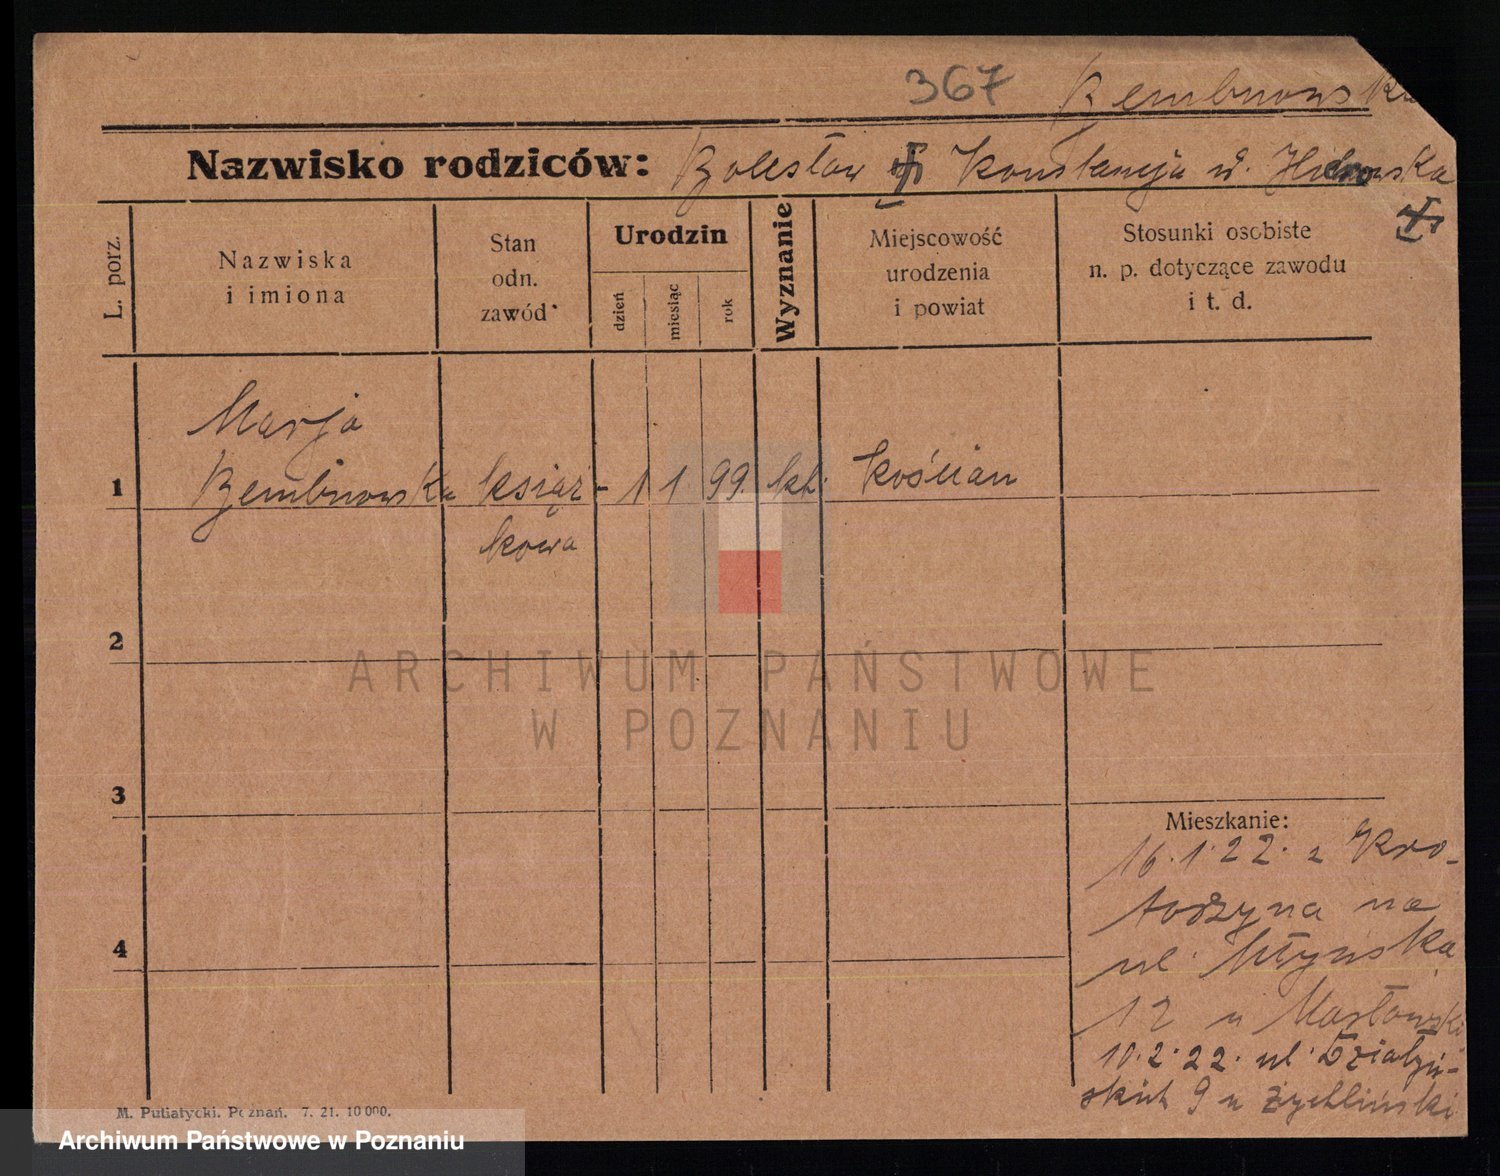 367 Bembnowska
Nazwisko rodziców: Bolesław Konstancja d.
L. porz.
Nazwiska
i imiona
Stan
odn.
zawód
Urodzin
dzień
miesiąc
rok
Wyznanie
Miejscowość
urodzenia
i powiat
Stosunki osobiste
n. p. dotyczące zawodu
i t. d.
Marja
1 Bembnowska książ- 1 1. 99. kt. Kościan
kowa
2
3
4
Mieszkanie:
16.1.22. z Kro-
todzyna na
ul. Młyńska
12 u Masłowski
10.2.22. ul. Działyń-
skich 9 u Żychliński
M. Putiatycki. Poznań. 7. 21. 10 000.
ARCHIWUM PAŃSTWOWE
W POZNANIU
Archiwum Państwowe w Poznaniu